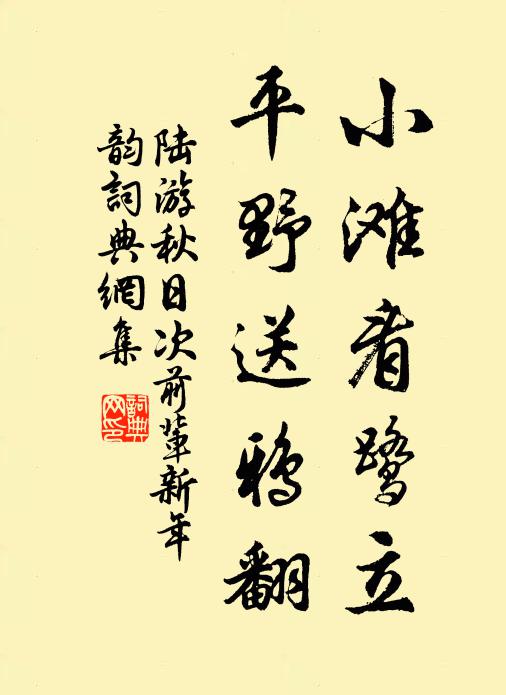 小滩看鹭立
平野送鸦翻
陆游秋日次前辈新年
韵詞典網集
詞典
网印